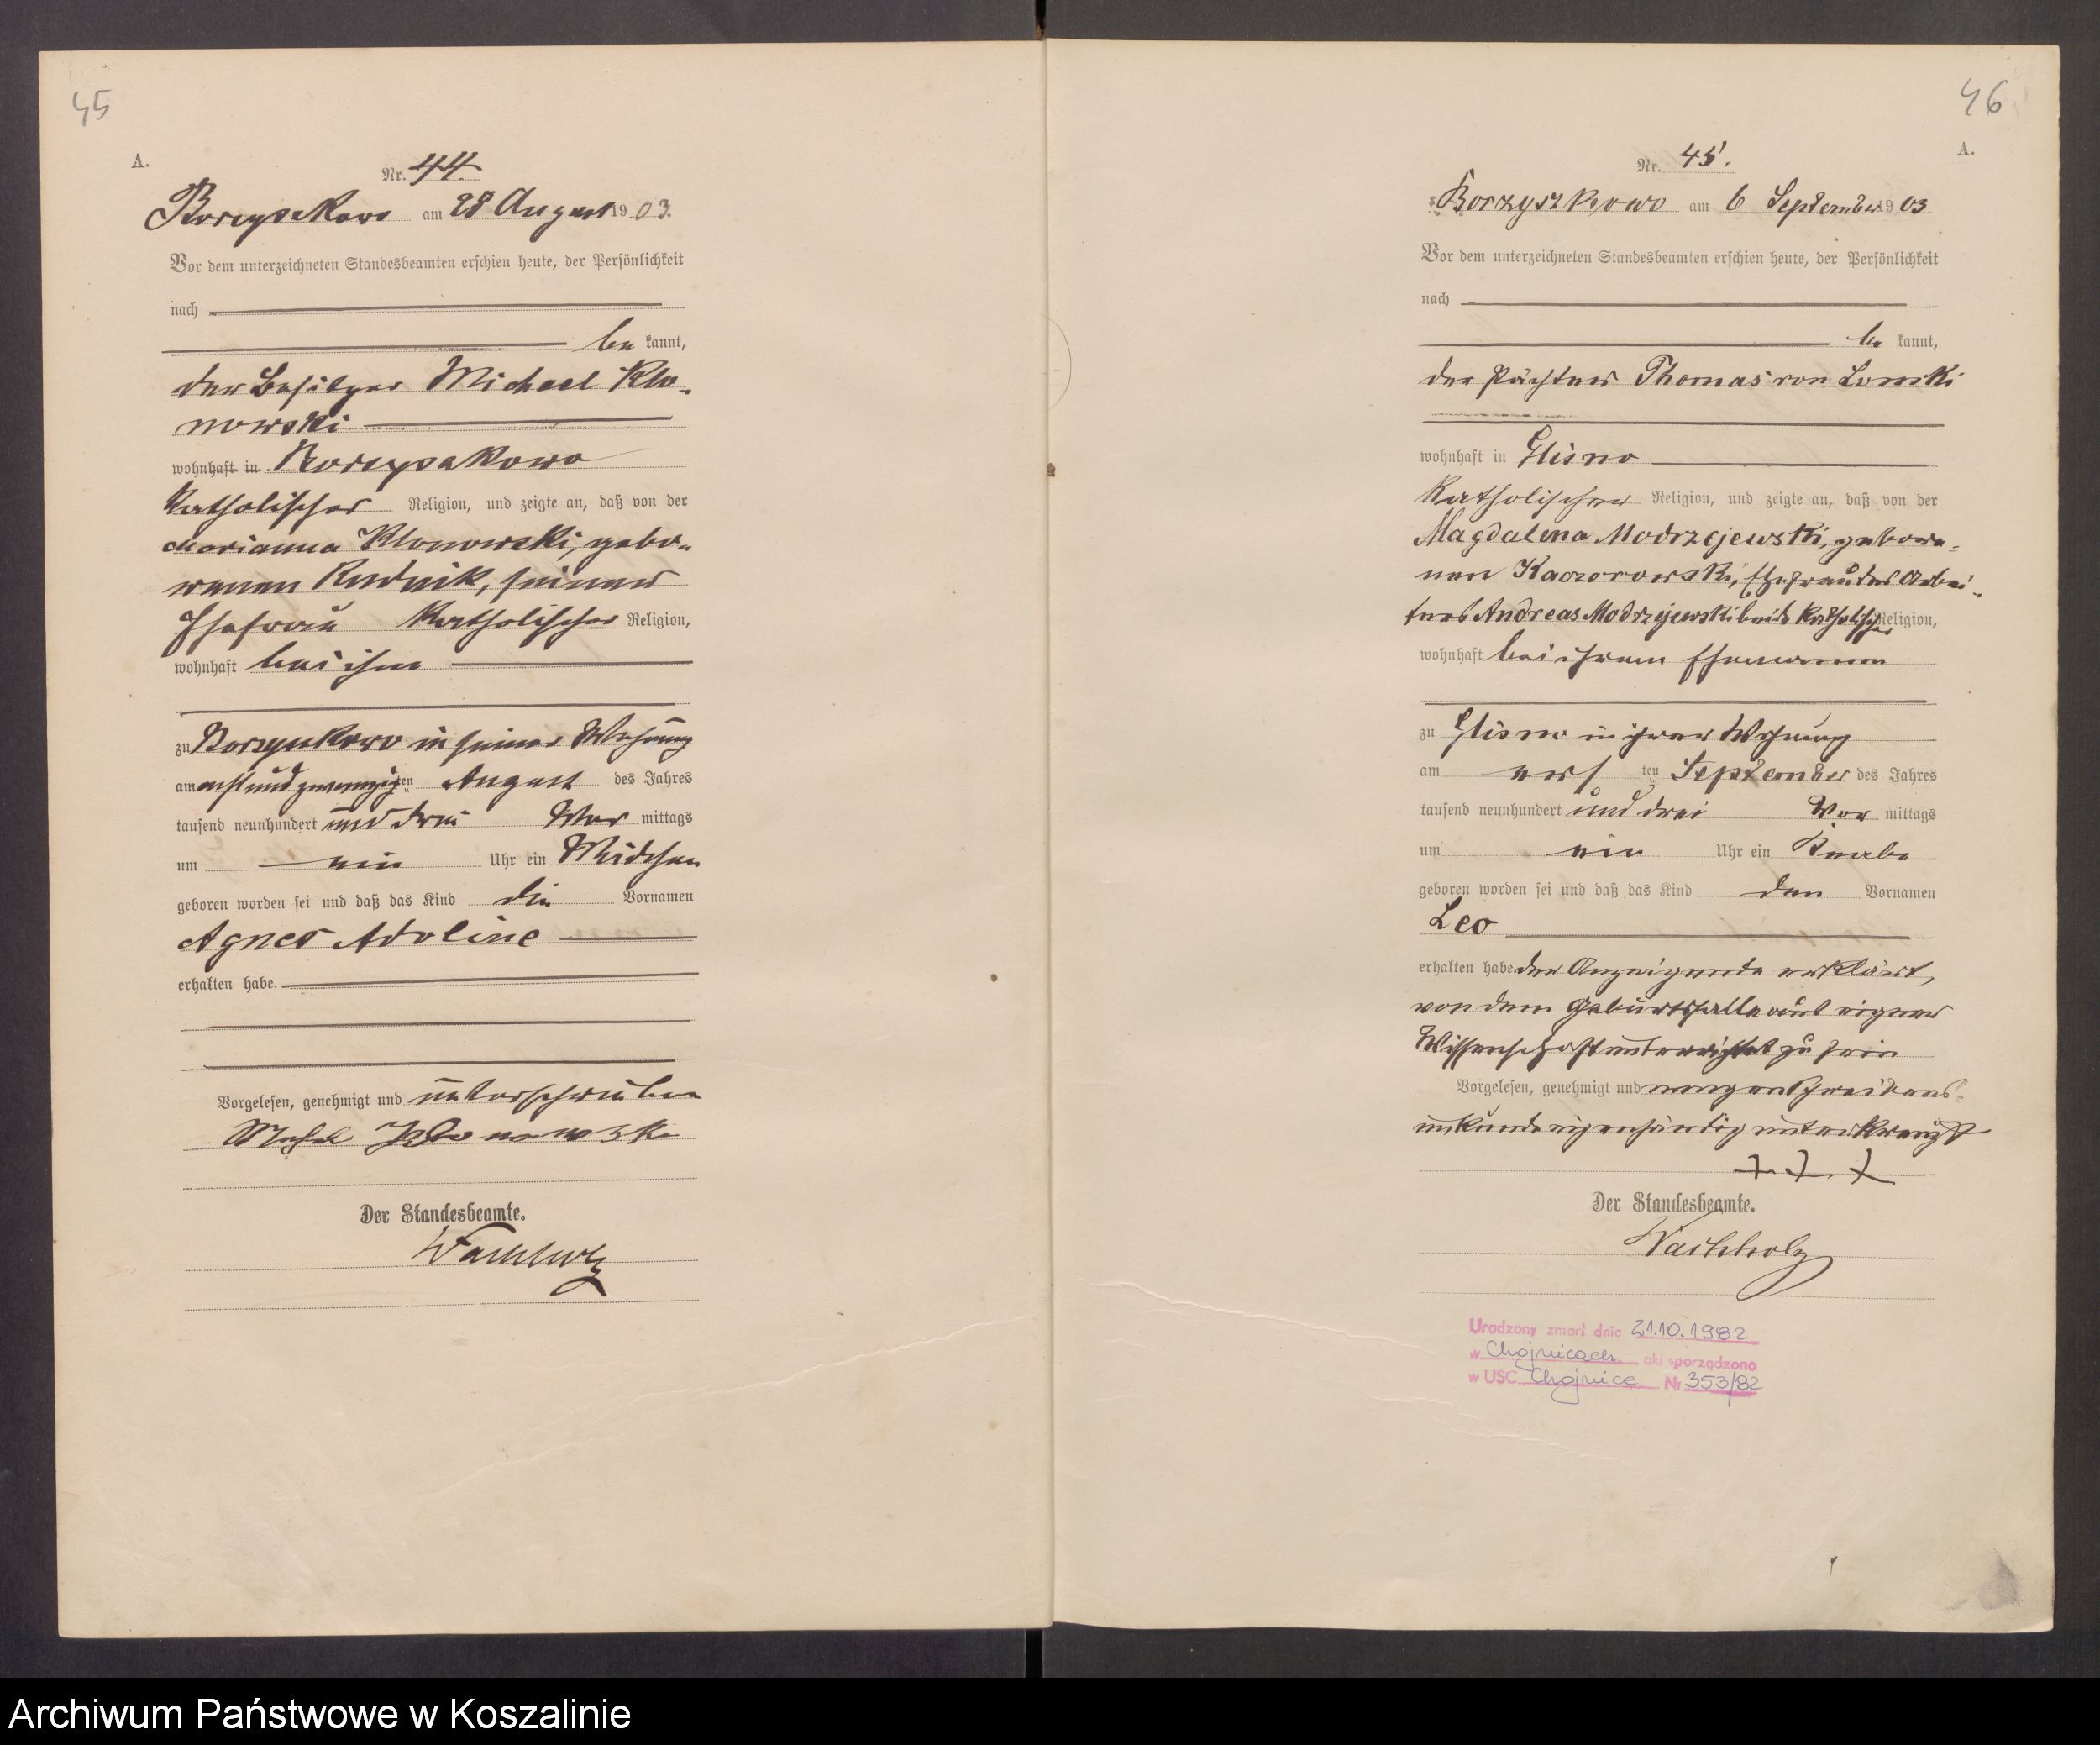 45
A.
Nr. 44.
Borzyszkowo am 28 August 1903.
Vor dem unterzeichneten Standesbeamten erschien heute, der Persönlichkeit
nach
be kannt,
der Besitzer Michael Klo-
nowski
wohnhaft in Borzyszkowo
katholischer Religion, und zeigte an, daß von der
Marianna Klonowski, gebo-
renen Rudnik, seiner
Ehefrau katholischer Religion,
wohnhaft bei ihm
zu Borzyszkowo in seiner Wohnung
am achtundzwanzigsten August des Jahres
tausend neunhundert und drei Vor mittags
um ein Uhr ein Mädchen
geboren worden sei und daß das Kind die Vornamen
Agnes Adoline
erhalten habe.
Vorgelesen, genehmigt und unterschrieben
Klonowski
Der Standesbeamte.
Wachholz
46
A.
Nr. 45.
Borzyszkowo am 6 September 1903
Vor dem unterzeichneten Standesbeamten erschien heute, der Persönlichkeit
nach
be kannt,
der Pächter Thomas von Lonski
wohnhaft in Glisno
katholischer Religion, und zeigte an, daß von der
Magdalena Modrzejewski, gebore-
nen Kaczorowski, Ehefrau des Arbei-
ters Andreas Modrzejewski beide katholischer Religion,
wohnhaft bei ihrem Ehemann
zu Glisno in ihrer Wohnung
am ers ten September des Jahres
tausend neunhundert und drei Vor mittags
um ein Uhr ein Knabe
geboren worden sei und daß das Kind den Vornamen
Leo
erhalten habe der Anzeigende erklärt,
von dem Geburtsfalle aus eigner
Wissenschaft unterrichtet zu sein
Vorgelesen, genehmigt und wegen Schreibens-
unkunde eigenhändig unterkreuzt
+ + +
Der Standesbeamte.
Wachholz
Urodzony zmarł dnia 21.10.1982
w Chojnicach akt sporządzono
w USC Chojnice Nr 353/82
Archiwum Państwowe w Koszalinie